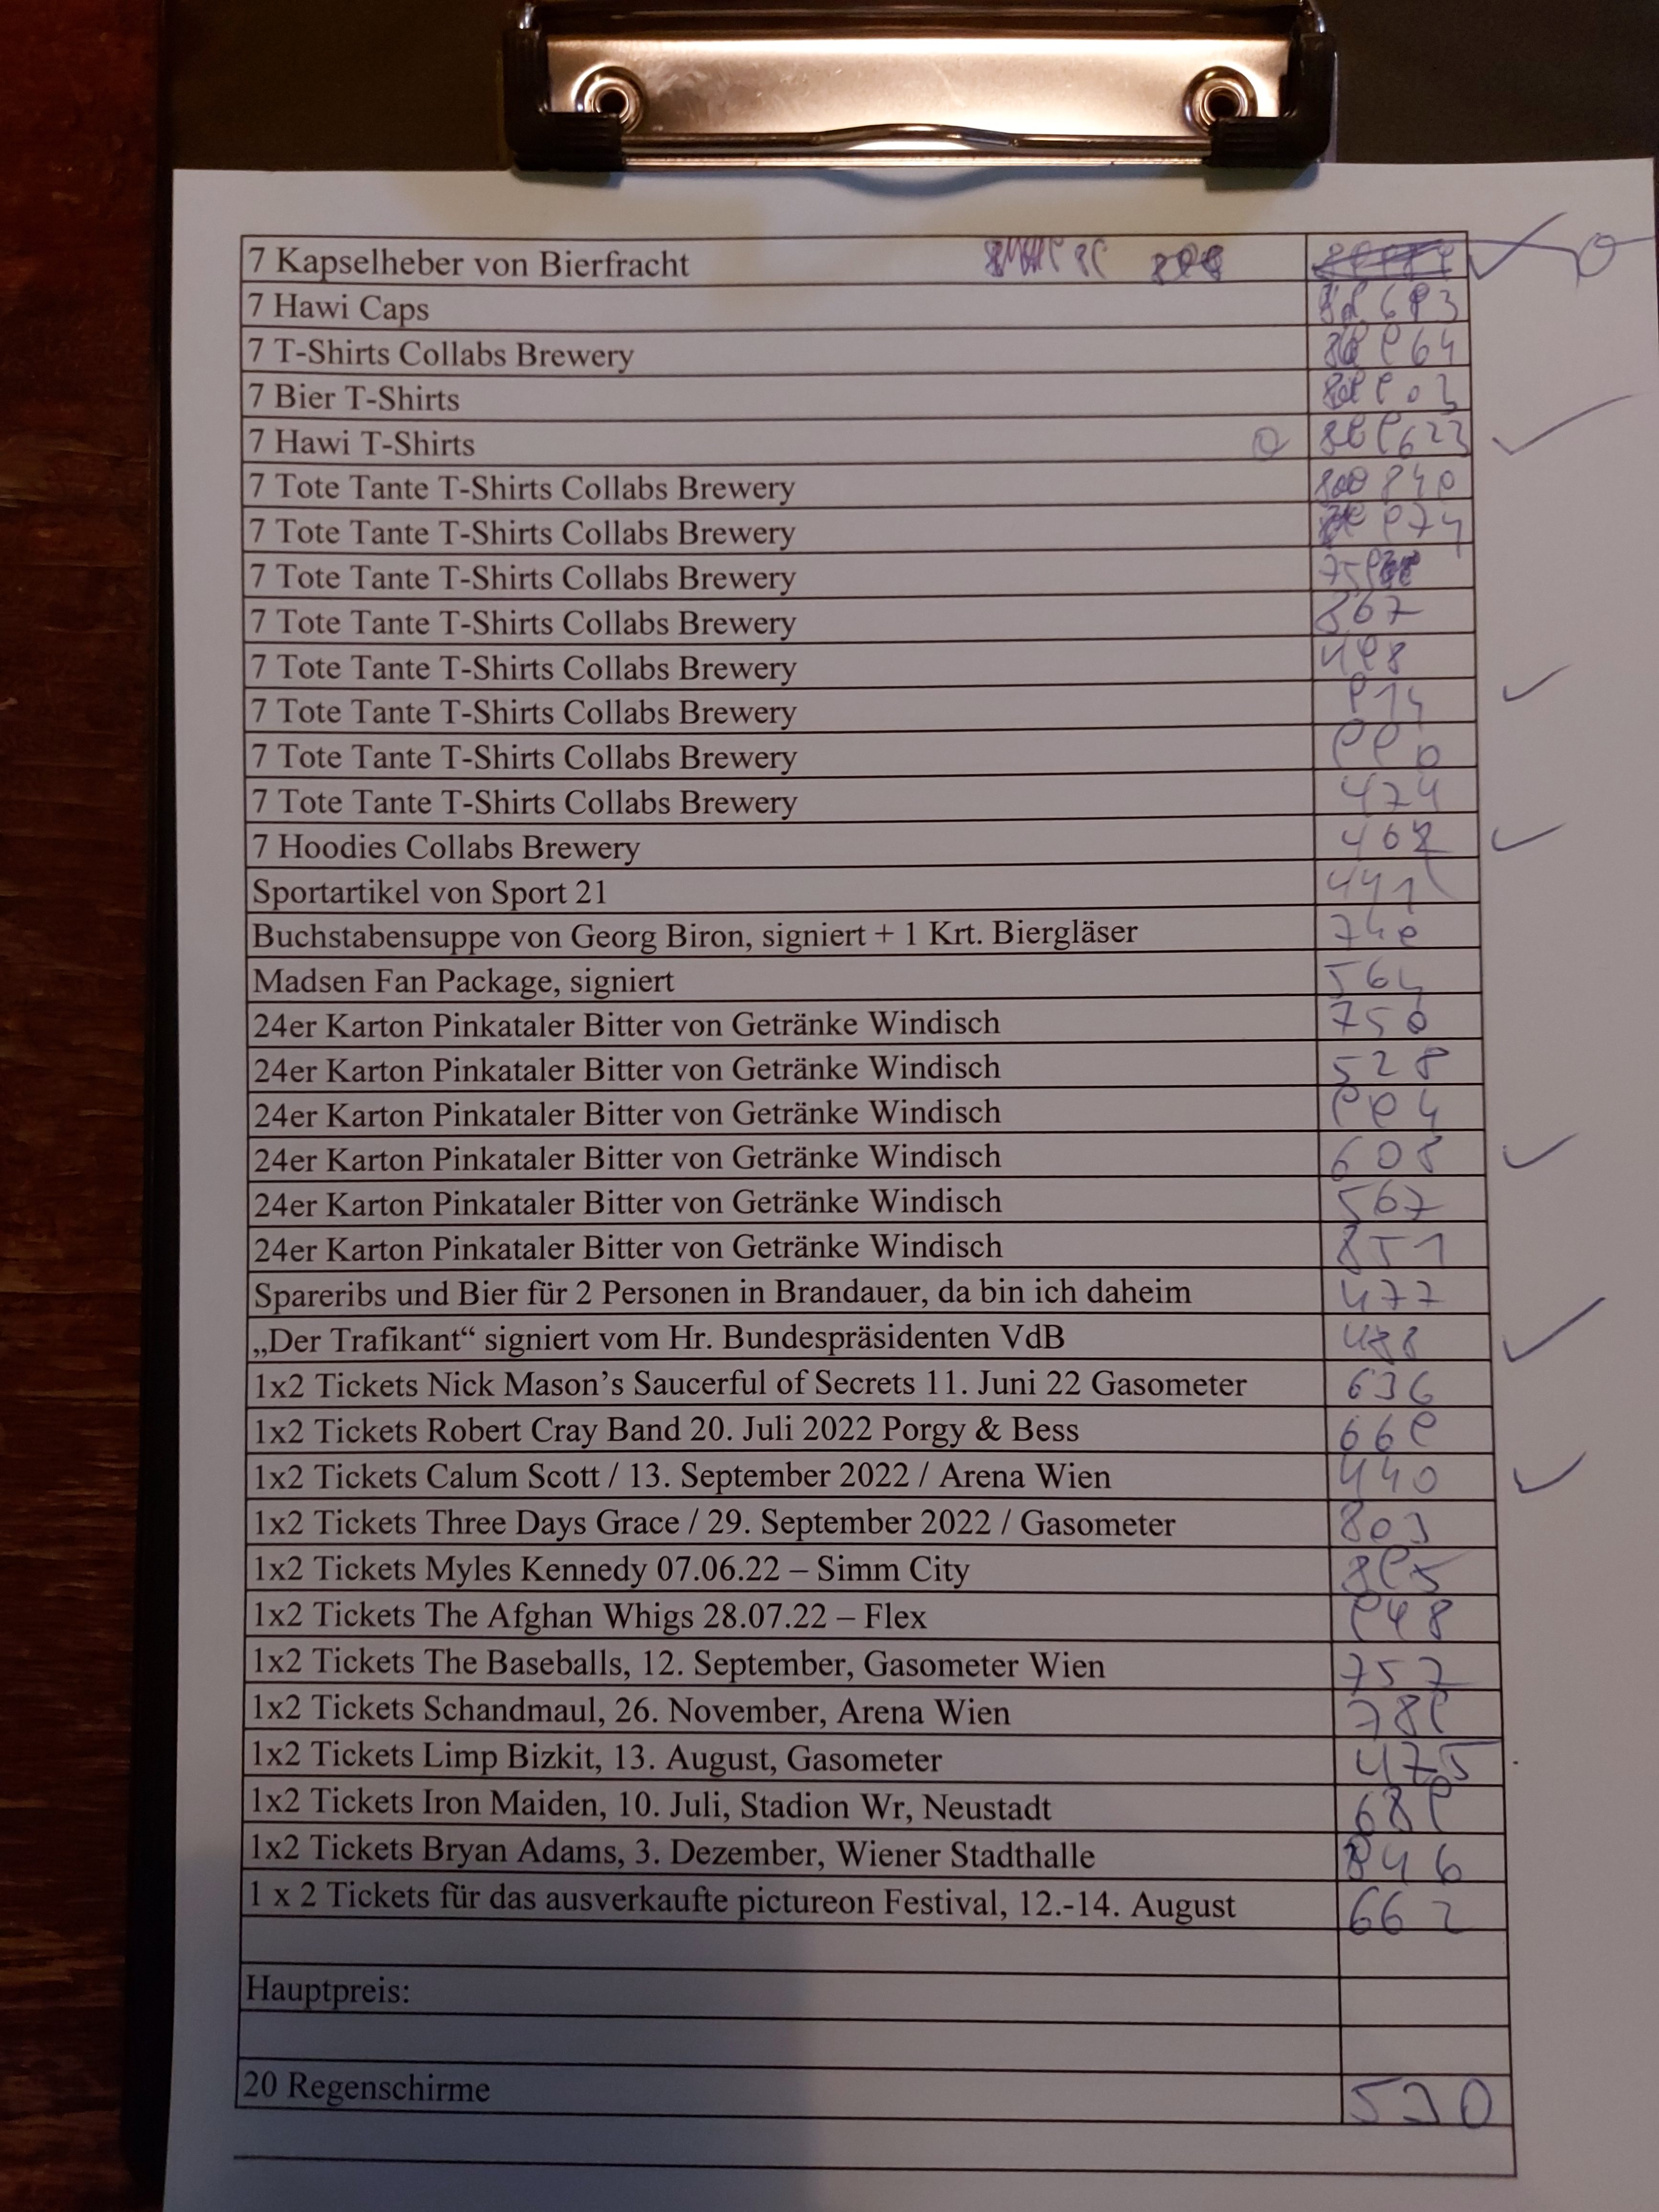 7 Kapselheber von Bierfracht
7 Hawi Caps
7 T-Shirts Collabs Brewery
7 Bier T-Shirts
7 Hawi T-Shirts
7 Tote Tante T-Shirts Collabs Brewery
7 Tote Tante T-Shirts Collabs Brewery
7 Tote Tante T-Shirts Collabs Brewery
7 Tote Tante T-Shirts Collabs Brewery 867
7 Tote Tante T-Shirts Collabs Brewery 498
7 Tote Tante T-Shirts Collabs Brewery 914
7 Tote Tante T-Shirts Collabs Brewery 990
7 Tote Tante T-Shirts Collabs Brewery 474
7 Hoodies Collabs Brewery
Sportartikel von Sport 21 441
Buchstabensuppe von Georg Biron, signiert + 1 Krt. Biergläser 749
Madsen Fan Package, signiert 564
24er Karton Pinkataler Bitter von Getränke Windisch 750
24er Karton Pinkataler Bitter von Getränke Windisch 528
24er Karton Pinkataler Bitter von Getränke Windisch 994
24er Karton Pinkataler Bitter von Getränke Windisch 608
24er Karton Pinkataler Bitter von Getränke Windisch 567
24er Karton Pinkataler Bitter von Getränke Windisch 851
Spareribs und Bier für 2 Personen in Brandauer, da bin ich daheim 477
„Der Trafikant“ signiert vom Hr. Bundespräsidenten VdB 488
1x2 Tickets Nick Mason’s Saucerful of Secrets 11. Juni 22 Gasometer 636
1x2 Tickets Robert Cray Band 20. Juli 2022 Porgy & Bess 669
1x2 Tickets Calum Scott / 13. September 2022 / Arena Wien 440
1x2 Tickets Three Days Grace / 29. September 2022 / Gasometer 803
1x2 Tickets Myles Kennedy 07.06.22 – Simm City 895
1x2 Tickets The Afghan Whigs 28.07.22 – Flex 948
1x2 Tickets The Baseballs, 12. September, Gasometer Wien 757
1x2 Tickets Schandmaul, 26. November, Arena Wien 789
1x2 Tickets Limp Bizkit, 13. August, Gasometer 475
1x2 Tickets Iron Maiden, 10. Juli, Stadion Wr, Neustadt 689
1x2 Tickets Bryan Adams, 3. Dezember, Wiener Stadthalle 846
1 x 2 Tickets für das ausverkaufte pictureon Festival, 12.-14. August 662
Hauptpreis:
20 Regenschirme 530